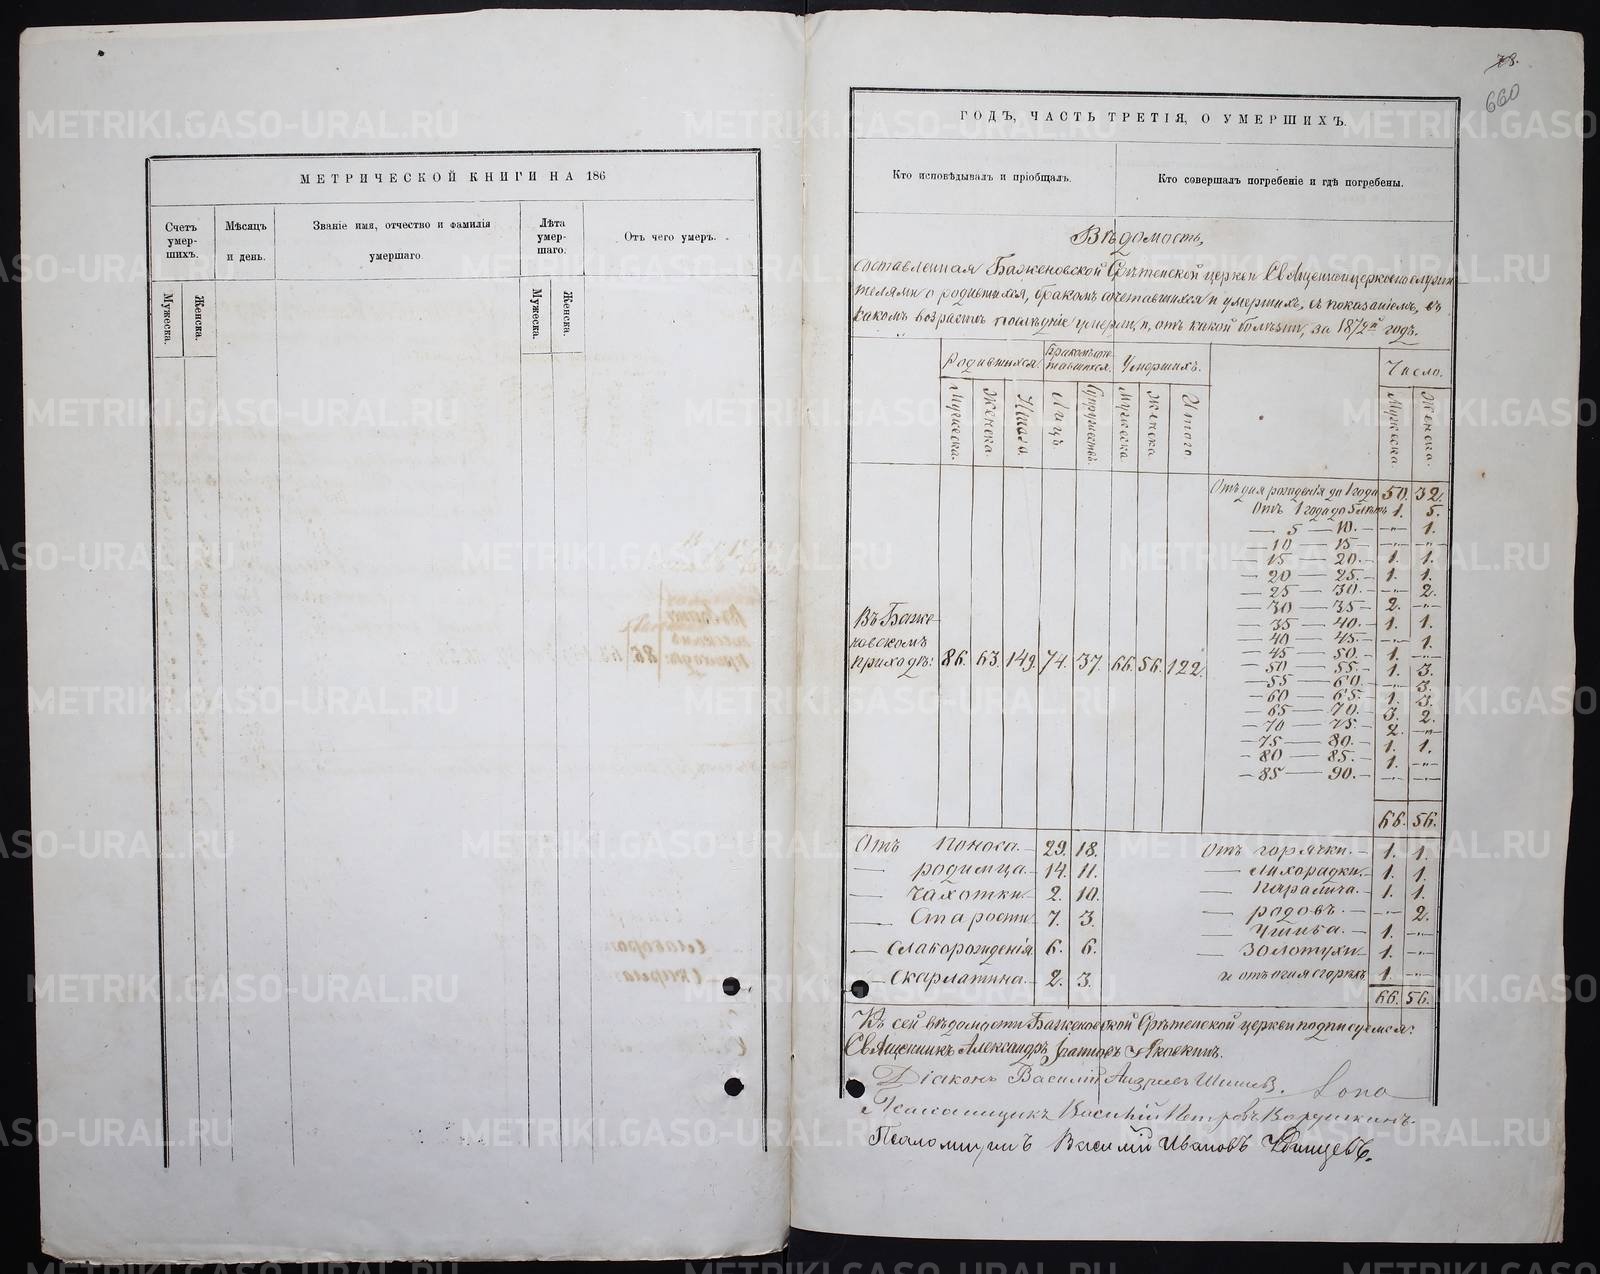 МЕТРИЧЕСКОЙ КНИГИ НА 186
Счетъ умер-шихъ.
Мѣсяцъ и день.
Званіе имя, отчество и фамилія умершаго.
Лѣта умер-шаго.
Отъ чего умеръ.
Мужеска.
Женска.
Мужеска.
Женска.
78.
660
ГОДЪ, ЧАСТЬ ТРЕТІЯ, О УМЕРШИХЪ.
Кто исповѣдывалъ и пріобщалъ.
Кто совершалъ погребеніе и гдѣ погребены.
Вѣдомость,
составленная Баженовской Срѣтенской церкви Священноцерковнослужи
телями о родившихся, бракомъ сочетавшихся и умершихъ, съ показаніемъ, въ
какомъ возрастѣ послѣдніе умерли и, отъ какой болѣзни, за 1872й годъ.
Родившихся.
Бракомъ соче-тавшихся.
Умершихъ.
Число.
Мужеска.
Женска.
Итого.
Лицъ.
Супружествъ.
Мужеска
Женска
Итого.
Мужеска.
Женска.
Въ Баже-
новскомъ
приходѣ: 86. 63. 149. 74. 37. 66. 56. 122.
Отъ дня рожденія до 1 года 50. 32.
Отъ 1 года до 5 лѣтъ 1. 5.
— 5 — 10. — „ — 1.
— 10 — 15 — „ — — „ —
— 15 — 20. — 1. 1.
— 20 — 25. — 1. 1.
— 25 — 30. — „ — 2.
— 30 — 35 — 2. — „ —
— 35 — 40. — 1. 1.
— 40 — 45. — „ — 1.
— 45 — 50. — 1. — „ —
— 50 — 55. — 1. 3.
— 55 — 60. — „ — 3.
— 60 — 65. — 1. 3.
— 65 — 70. — 3. 2.
— 70 — 75. — 2. — „ —
— 75 — 80. — 1. 1.
— 80 — 85. — 1. — „ —
— 85 — 90. — — „ — — „ —
66. 56.
Отъ поноса. — 29. 18.
— родимца. — 14. 11.
— Чахотки — 2. 10.
— Старости 7. 3.
— Слаборожденія 6. 6.
— Скарлатина. — 2. 3.
Отъ горячки. — 1. 1.
— Лихорадки. — 1. 1.
— Паралича. — 1. 1.
— родовъ. — „ — 2.
— Ушиба. — 1. — „ —
— Золотухи — 1. — „ —
и отъ огня сгорѣлъ 1. — „ —
66. 56.
Къ сей вѣдомости Баженовской Срѣтенской церкви подписуемся:
Священникъ Александръ Яковкинъ.
Діаконъ Василій Андреевъ Шишевъ.
Псаломщикъ Василій Петровъ
Псаломщикъ Василій Ивановъ
METRIKI.GASO-URAL.RU